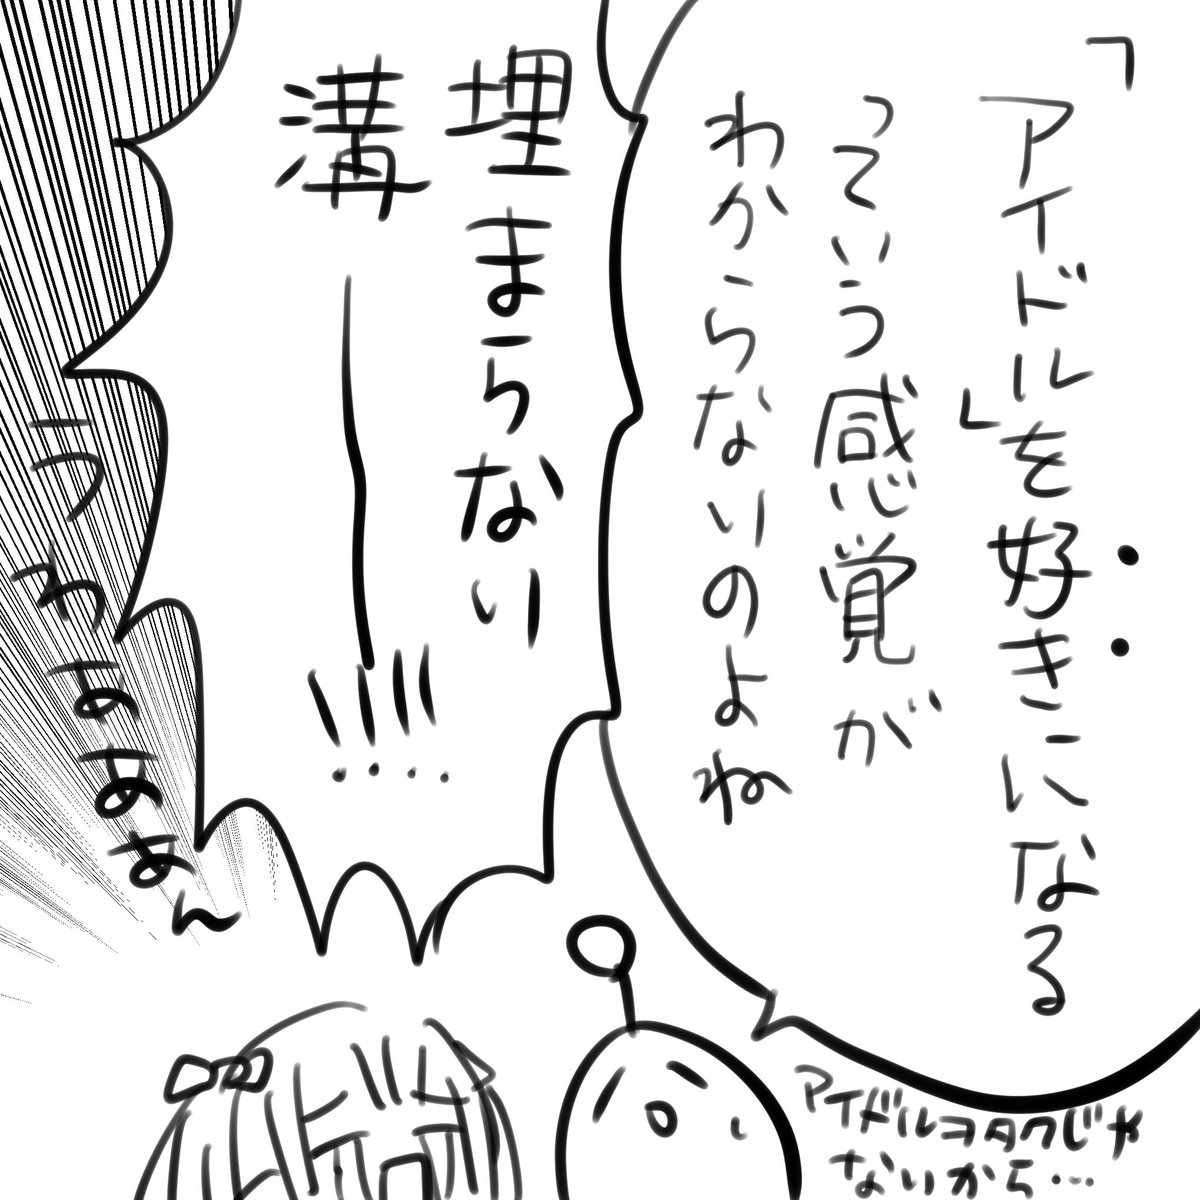 「アイドル」を好きになる
っていう感覚が
わからないのよね
アイドルヲタクじゃ
ないから…
埋まらない
溝──!!!!
うわぁぁぁん